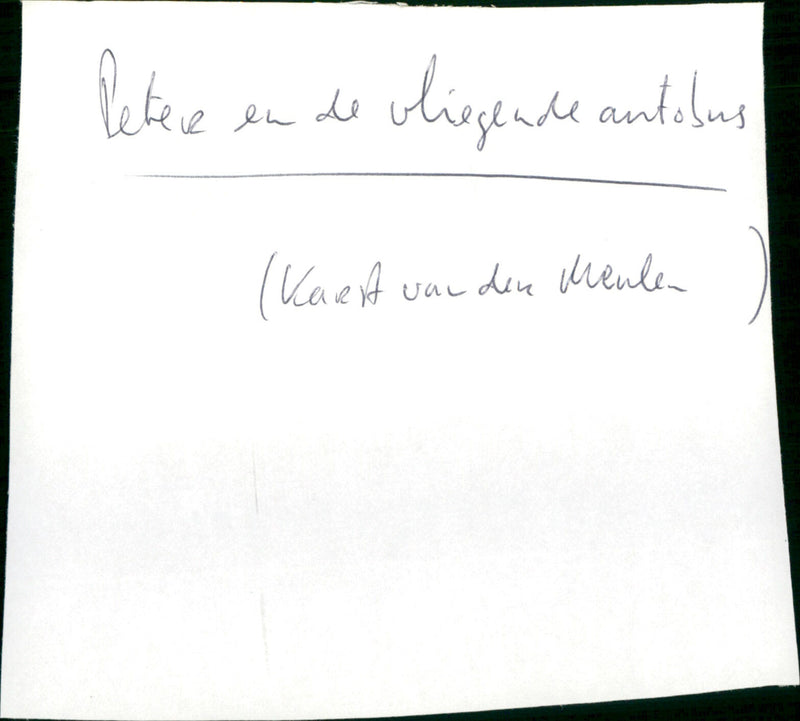 Peter en de vliegende autobus
(Karst van der Meulen)